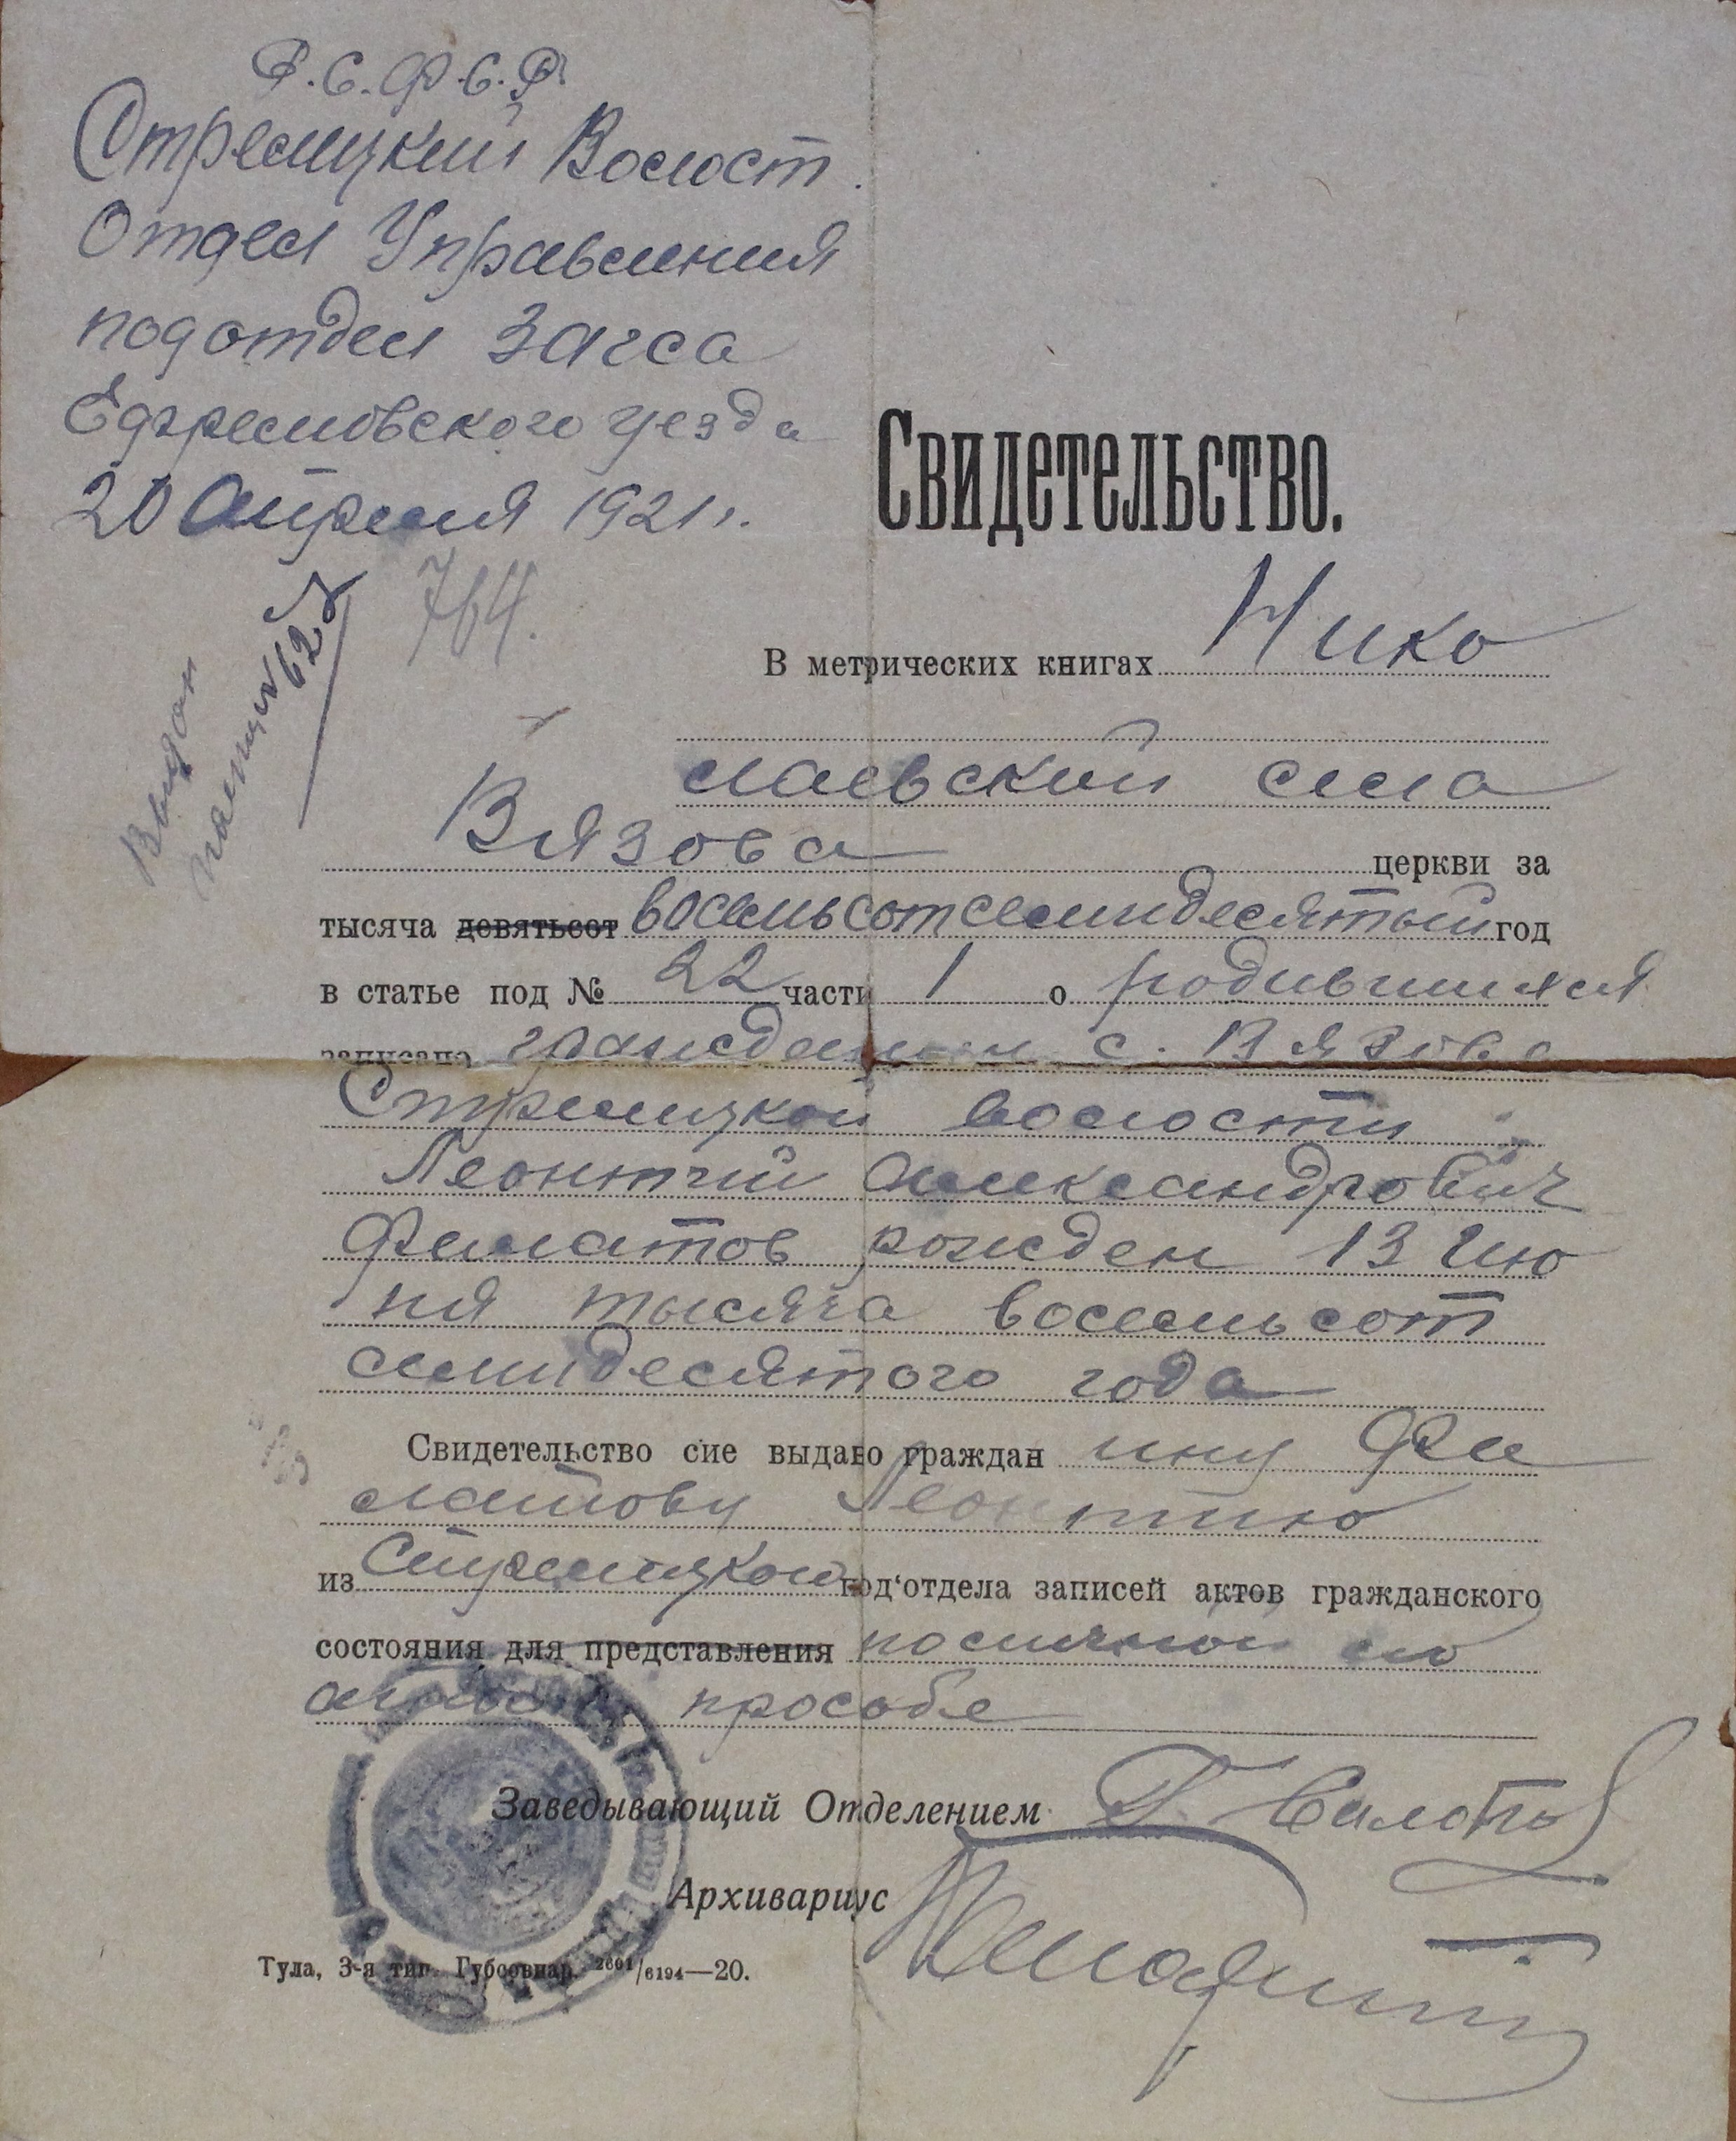 Р.С.Ф.С.Р.
Стрелецкий Волост.
Отдел Управления
подотдел Загса
Ефремовского уезда
20 Апреля 1921 г.
764.
Выдан
Свидетельство.
В метрических книгах Нико
лаевский села
Вязова церкви за
тысяча девятьсот восемьсот семидесятый год
в статье под № 22 части 1 о родившихся
записано гражданин с. Вязова
Стрелецкой волости
Леонтий Александрович
Филатов рожден 13 Ию
ня тысяча восемьсот
семидесятого года
Свидетельство сие выдано граждан ину Фи
латову Леонтию
из Стрелецкой под‘отдела записей актов гражданского
состояния для представления по личной его
просьбе
Заведывающий Отделением
Архивариус
Тула, 3-я тип. Губсовнар. 2601/6194—20.